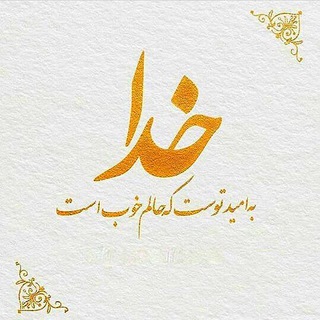 خدا
به امید توست که حالم خوب است